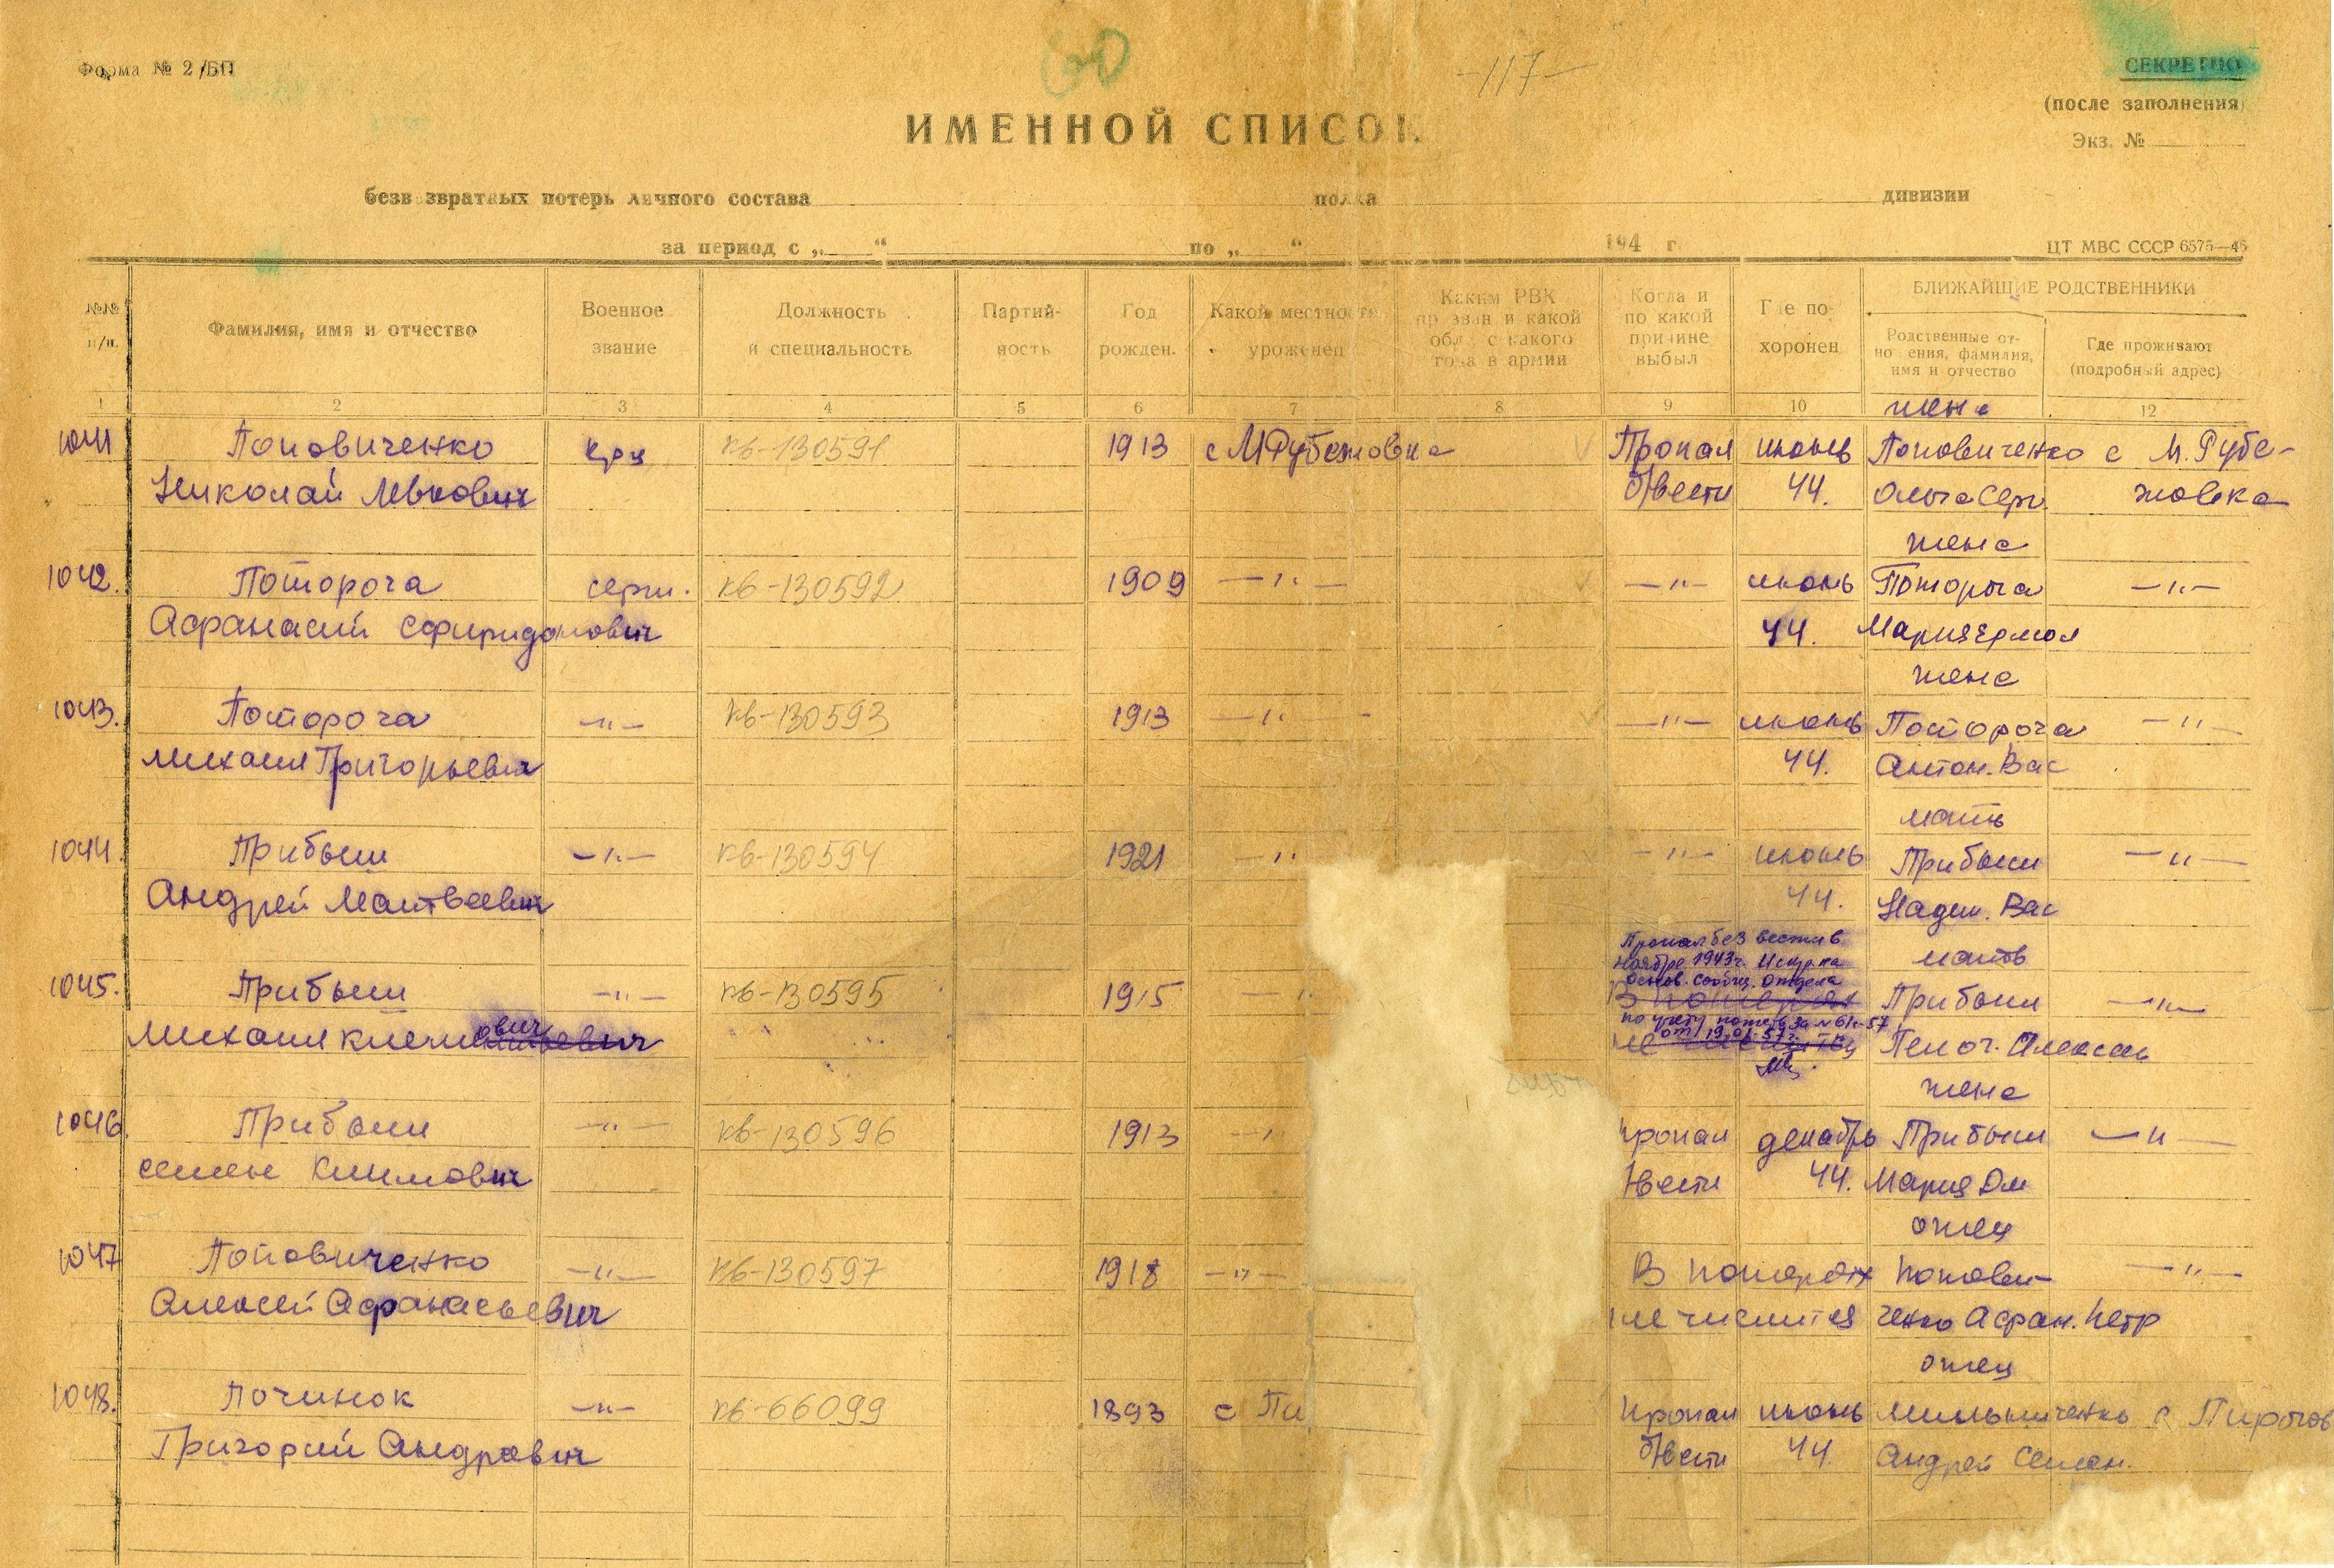 Форма № 2/БП
60
-117-
СЕКРЕТНО
(после заполнения)
Экз. №
ИМЕННОЙ СПИСОК
безвозвратных потерь личного состава полка дивизии
за период с „ “ по „ “ 194 г.
ЦТ МВС СССР 6575—46
№№ п/п.
Фамилия, имя и отчество
Военное звание
Должность и специальность
Партийность
Год рожден.
Какой местности уроженец
Каким РВК призван и какой обл., с какого года в армии
Когда и по какой причине выбыл
Где похоронен
БЛИЖАЙШИЕ РОДСТВЕННИКИ
Родственные отношения, фамилия, имя и отчество
Где проживают (подробный адрес)
1 2 3 4 5 6 7 8 9 10 12
жена
1041 Поповиченко кр-ц кв-130591 1913 с М Рубежовка Пропал июнь Поповиченко с М. Рубе-
Николай Левкович б/вести 44. Ольга Серг. жовка
жена
1042. Потороча серж. кв-130592 1909 —"— —"— июнь Потороча —"—
Афанасий Сфиридонович 44. Мария Ермол
жена
1043. Потороча —"— кв-130593 1913 —"— —"— июнь Потороча —"—
Михаил Григорьевич 44. Антон. Вас
мать
1044. Прибыш —"— кв-130594 1921 —" —"— июнь Прибыш —"—
Андрей Матвеевич 44. Надеж. Вас
Пропал без вести в
ноябре 1943 г. Испр. на
основ. сообщ. отдела
мать
1045. Прибыш —"— кв-130595 1915 —" В потерях Прибыш —"—
по учету потерь за № 61с-57
от 19.01.57 г.
Михаил Климович не числится Пелог. Алексан
жена
1046. Прибыш —"— кв-130596 1913 —" пропал декабрь Прибыш —"—
Семен Климович б/вести 44. Мария Дм
отец
1047 Поповиченко —"— кв-130597 1918 —"— В потерях Попови- —"—
Алексей Афанасьевич не числится ченко Афан. Петр
отец
1048. Починок —"— кв-66099 1893 с Пи пропал июнь Мельниченко с Пирогов
Григорий Андреевич б/вести 44. Андрей Семен.